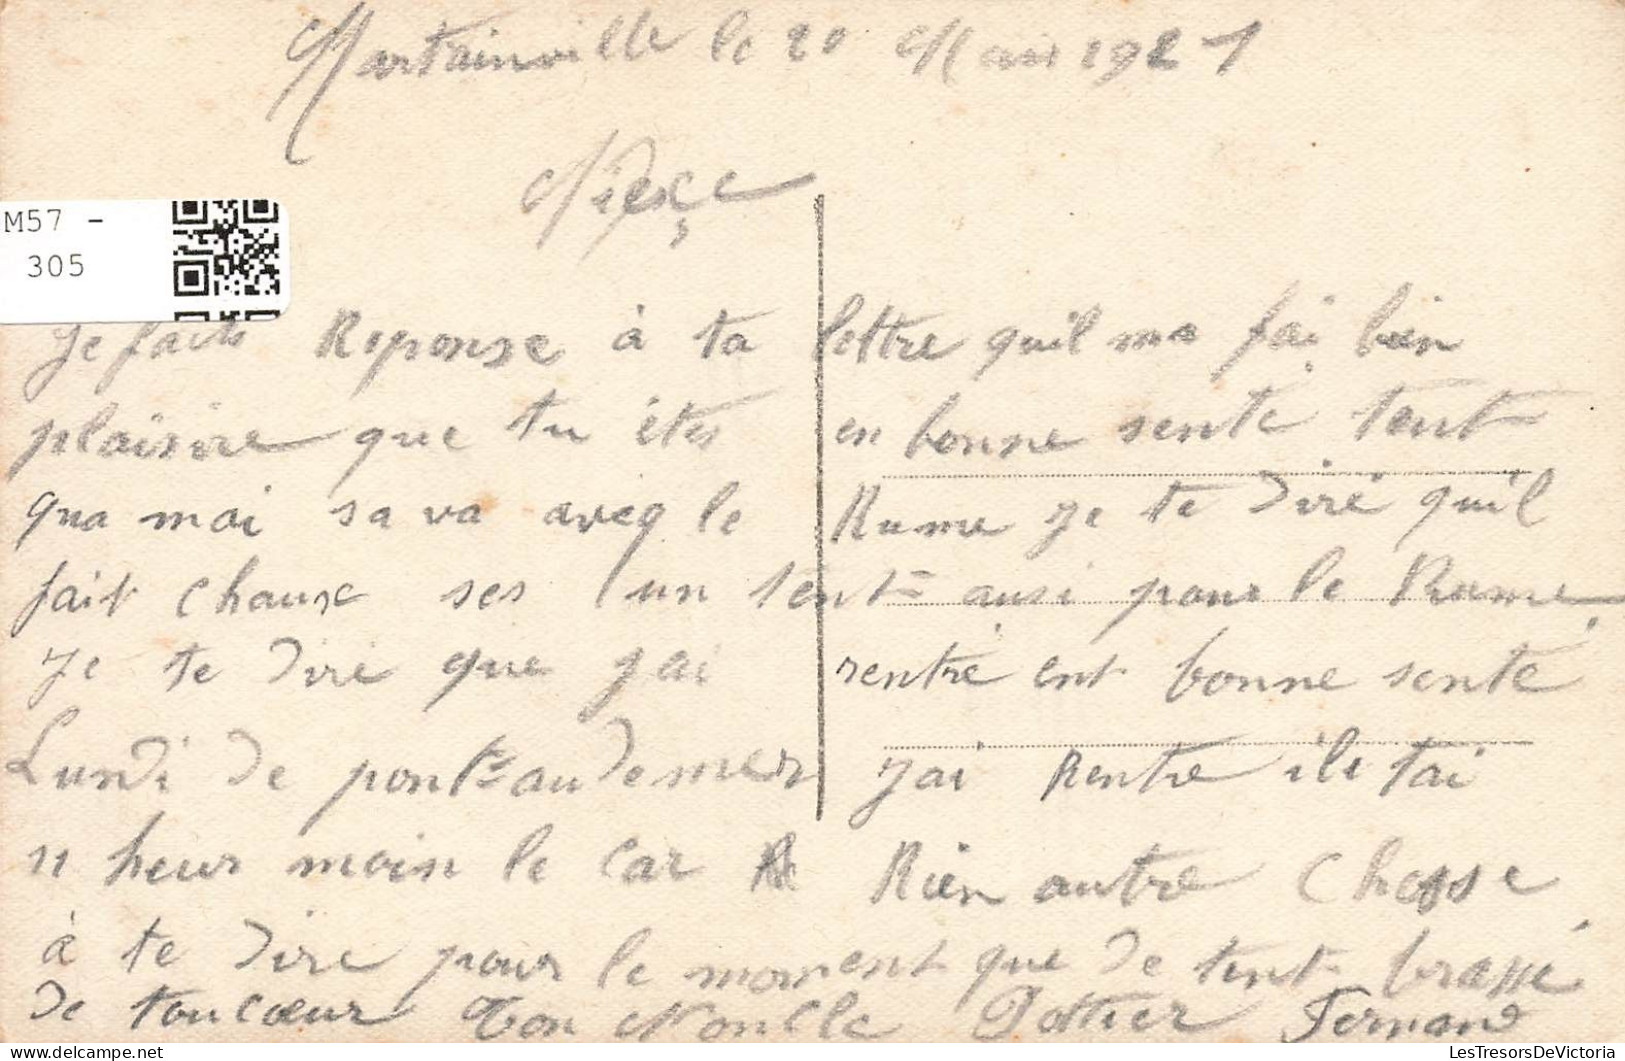 Martainville le 20 Mai 1921
Nièçe
M57 -
305
Je faits Reponse à ta lettre quil me fai bien
plaisire que tu êtes en bonne senté tent
qua moi sa va aveq le Rume je te diré quil
fait chause ses un tent ausi pour le Rume
je te diré que jai rentré ent bonne senté
Lundi de pont-audemer jai Rentré ile tai
11 heur moin le car Rien autre Chosse
à te dire pour le moment que de tent brassé
de toucœur Ton Noncle Pottier Fernand
LesTresorsDeVictoria